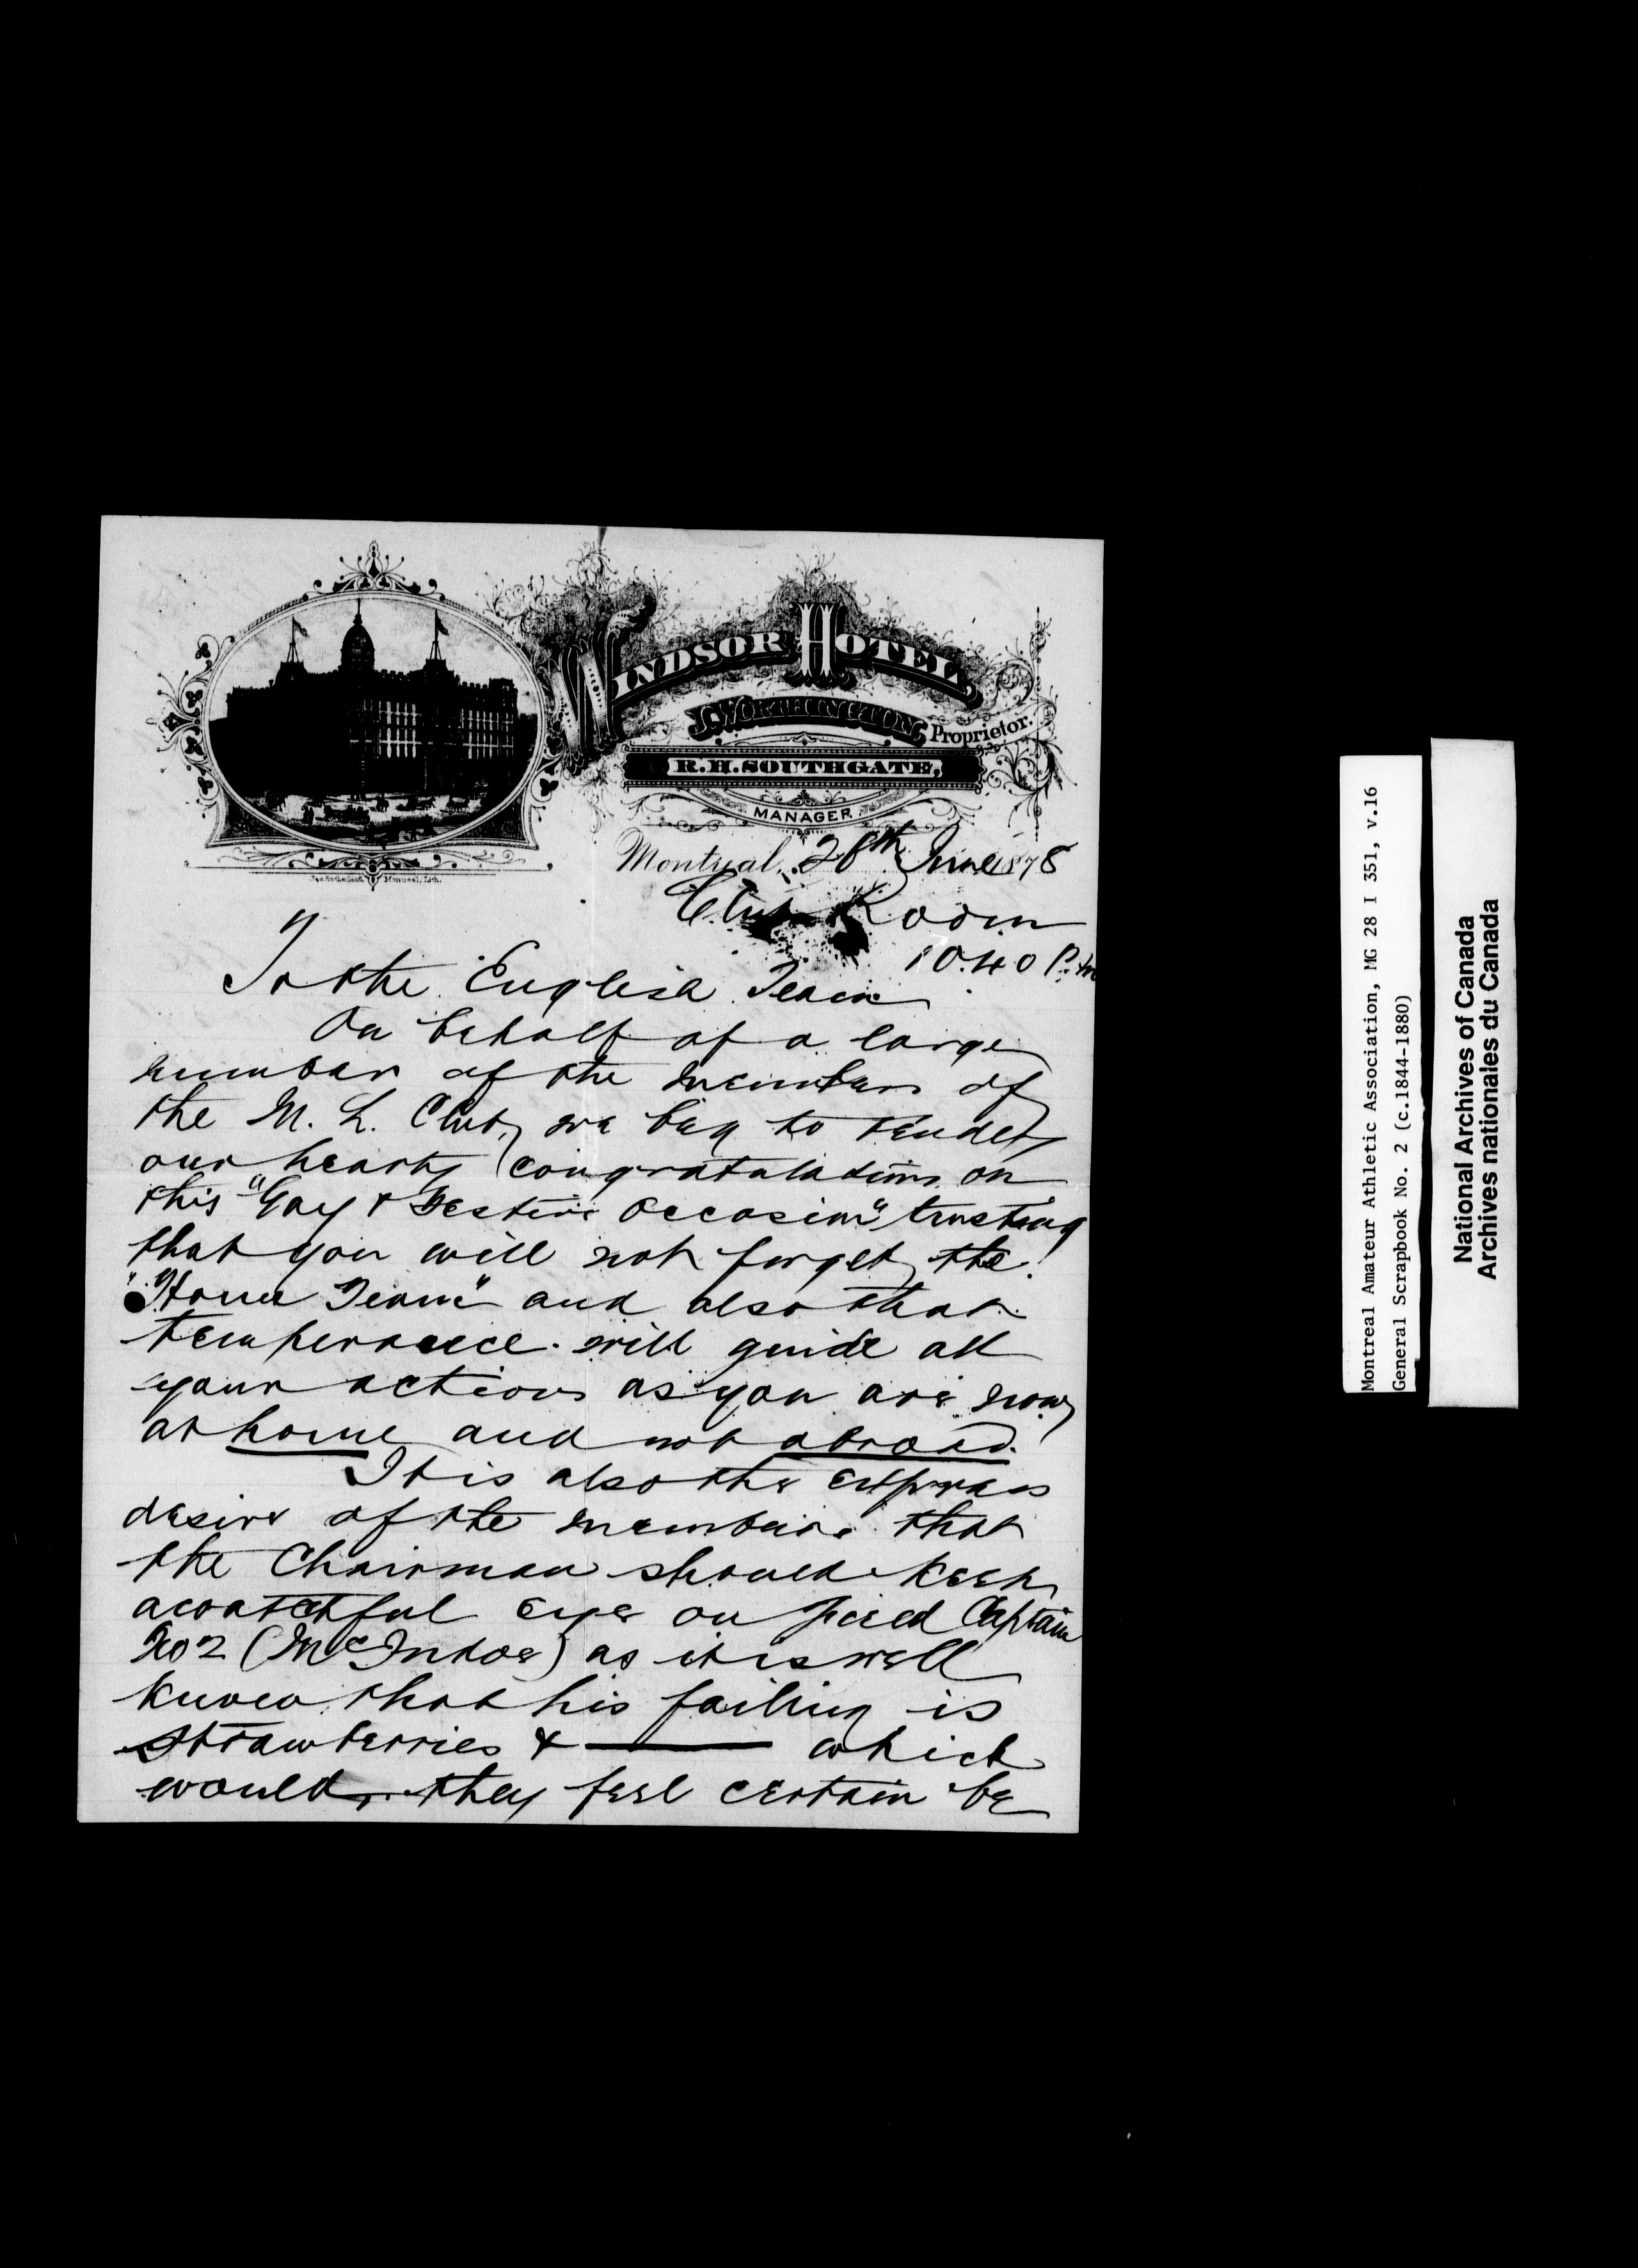 WINDSOR HOTEL,
J. WORTHINGTON, Proprietor.
R. H. SOUTHGATE,
MANAGER.
Montreal, 28th June 1878
Club Room
10.40 P.m
To the English Team
On behalf of a large
number of the members of
the M. L. Club, we beg to tender
our hearty congratulations on
this "Gay & Festive Occasion" trusting
that you will not forget the
"Home Team" and also that
temperance will guide all
your actions as you are now
at home and not abroad.
It is also the express
desire of the members that
the Chairman should keep
a watchful eye on field Captain
No 2 (McIndoe) as it is well
known that his failing is
strawberries & ——— which
would, they feel certain be
Montreal Amateur Athletic Association, MG 28 I 351, v.16
General Scrapbook No. 2 (c.1844-1880)
National Archives of Canada
Archives nationales du Canada